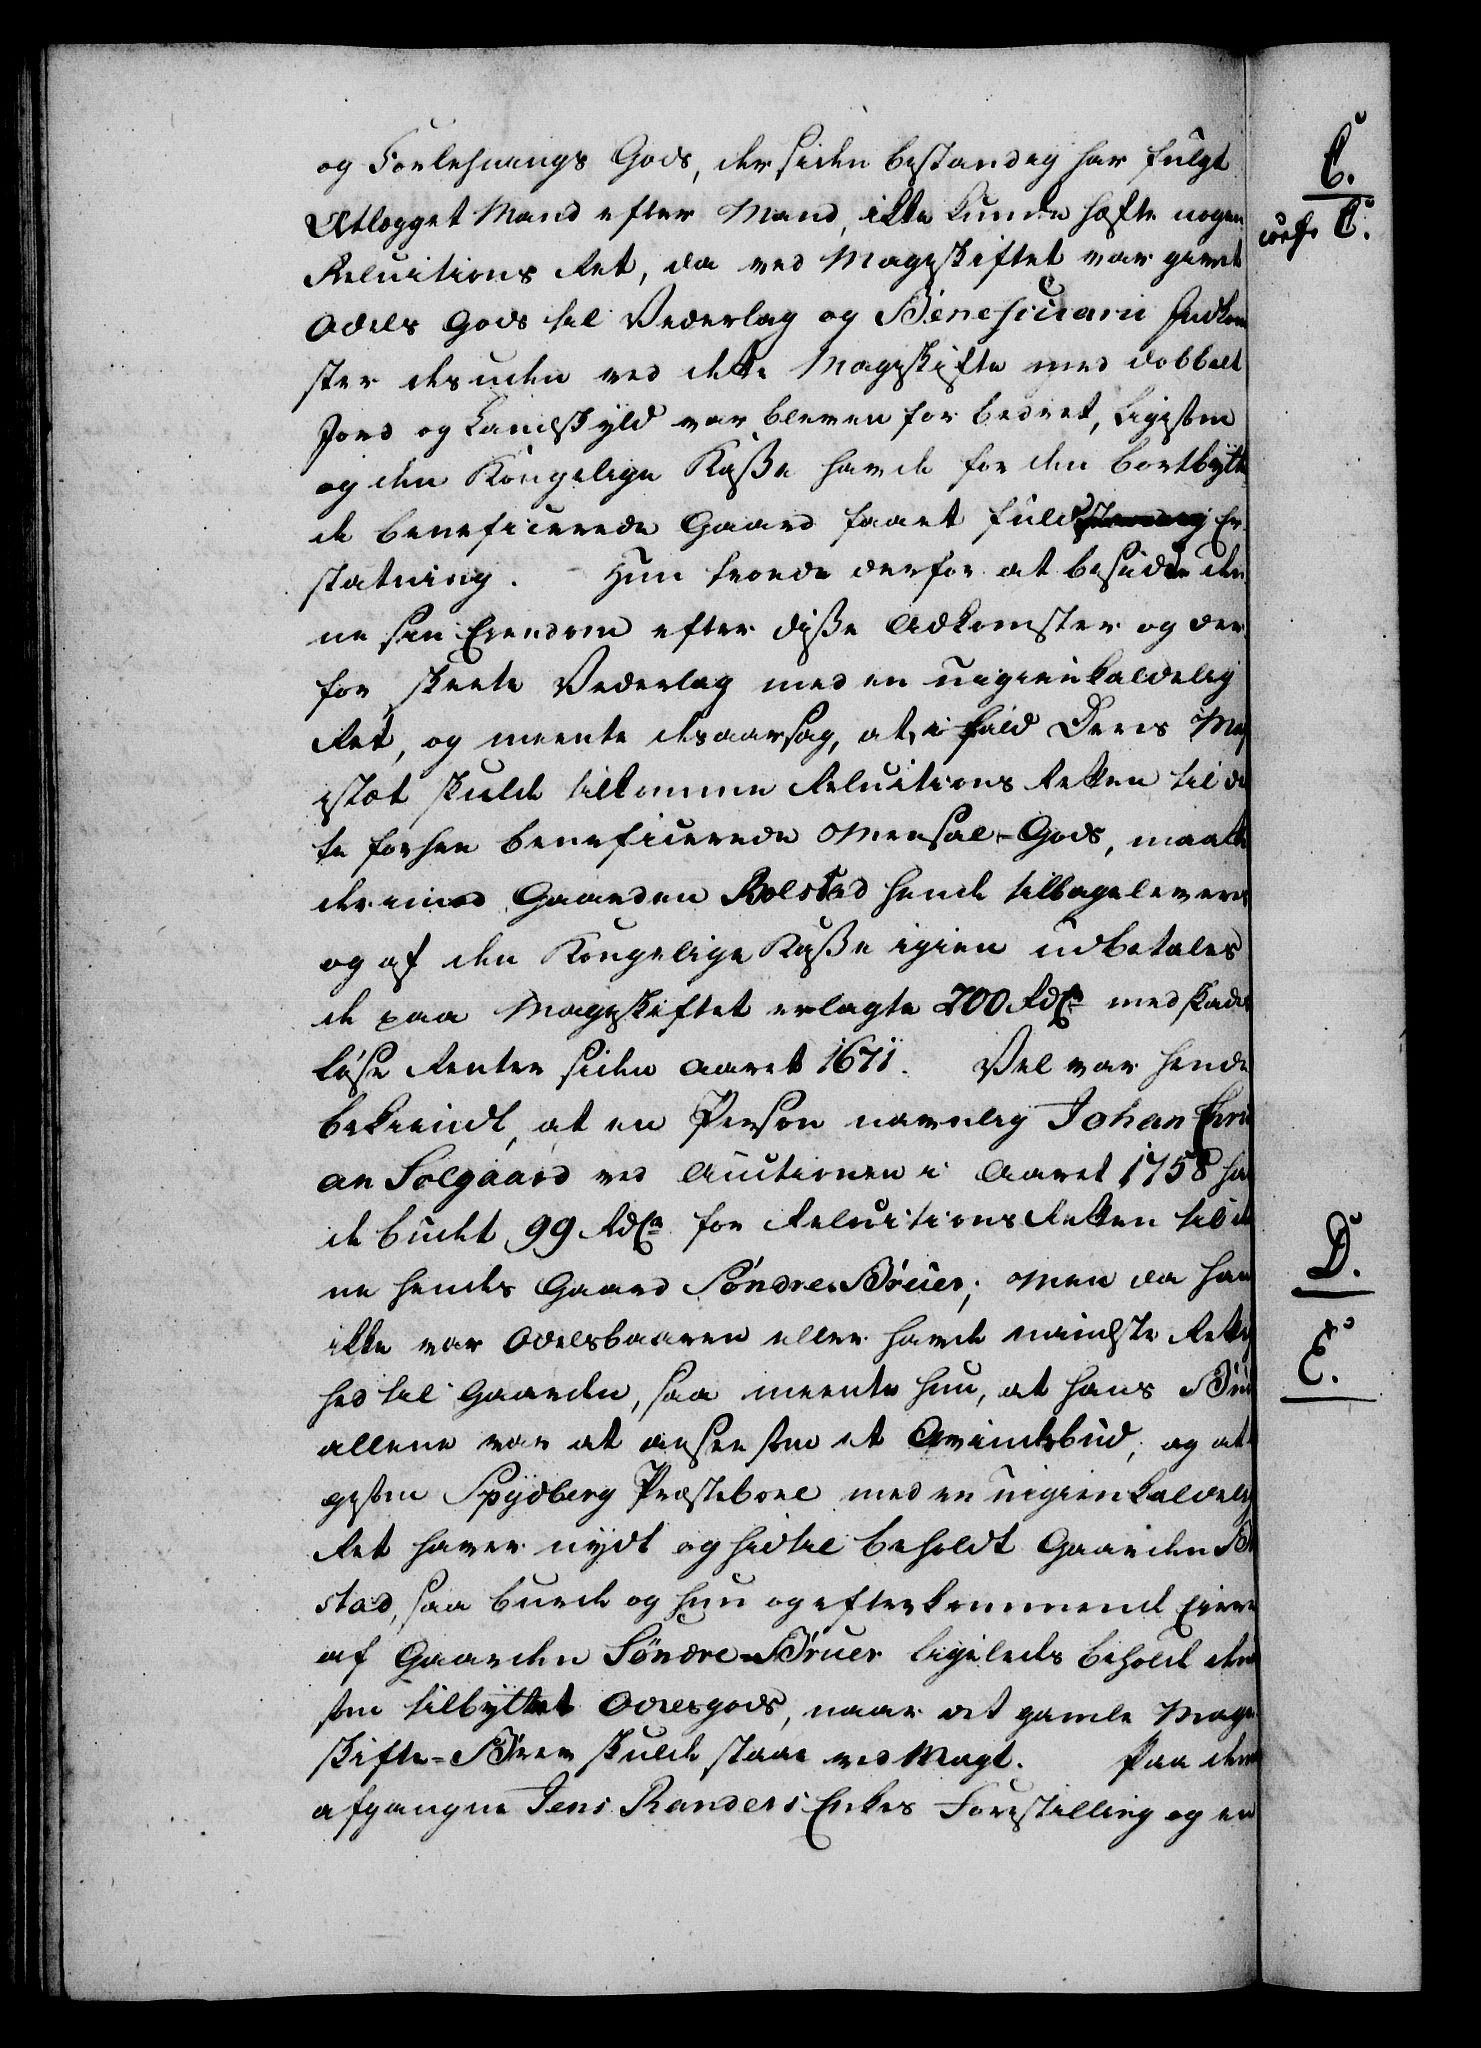 og Forlehnings Gods, der siden bestandig har fulgt
Utlægget Mand efter Mand, ikke kunde hæfte nogen
Reluitions Ret, da ved Mageskiftet var givet
Odels Gods til Vederlag og Beneficiarii Indkom
ster desuden ved dette Mageskifte med dobbelt
Jord og Landskyld var bleven forbedret, ligesom
og den Kongelige Kasse havde for den bortbytte
de beneficerede Gaard faaet fuld Er
statning. Hun troede derfor at besidde den
ne sin Eiendom efter disse Adkomster og der
for skeete Vederlag med en uigienkaldelig
Ret, og meente desaarsag, at i fald Deres Maj
estæt skulde tilkomme Reluitions Retten til det
te forhen beneficerede Mensal-Gods, maatte
derimod Gaarden Bolstad hende tilbageleveres
og af den Kongelige Kasse igien udbetales
de paa Mageskiftet erlagte 200 Rdlr med skades
løse Renter siden Aaret 1671. Vel var hende
bekiendt, at en Person navnlig Johan Chri
an Solgaard ved Auctionen i Aaret 1758 hav
de budt 99 Rdlr for Reluitions Retten til den
ne hendes Gaard Søndre Bruer; Men da han
ikke var Odelsbaaren eller havde mindste Rettig
hed til Gaarden, saa meente hun, at hans Bud
allene var at ansee som et Avindsbud, og at
gesom Spydberg Præstebord med en uigienkaldelig
Ret haver nydt og hidtil beholdt Gaarden Bol
stad, saa burde og hun og efterkommende Eiere
af Gaarden Søndre-Bruer ligeledes beholde den
som tilbyttet Odelsgods, naar det gamle Mage
skifte-Brev skulde staae ved Magt. Paa den
afgangne Jens Randers Enkes Forestilling og an
C.
conf. C.
D.
E.